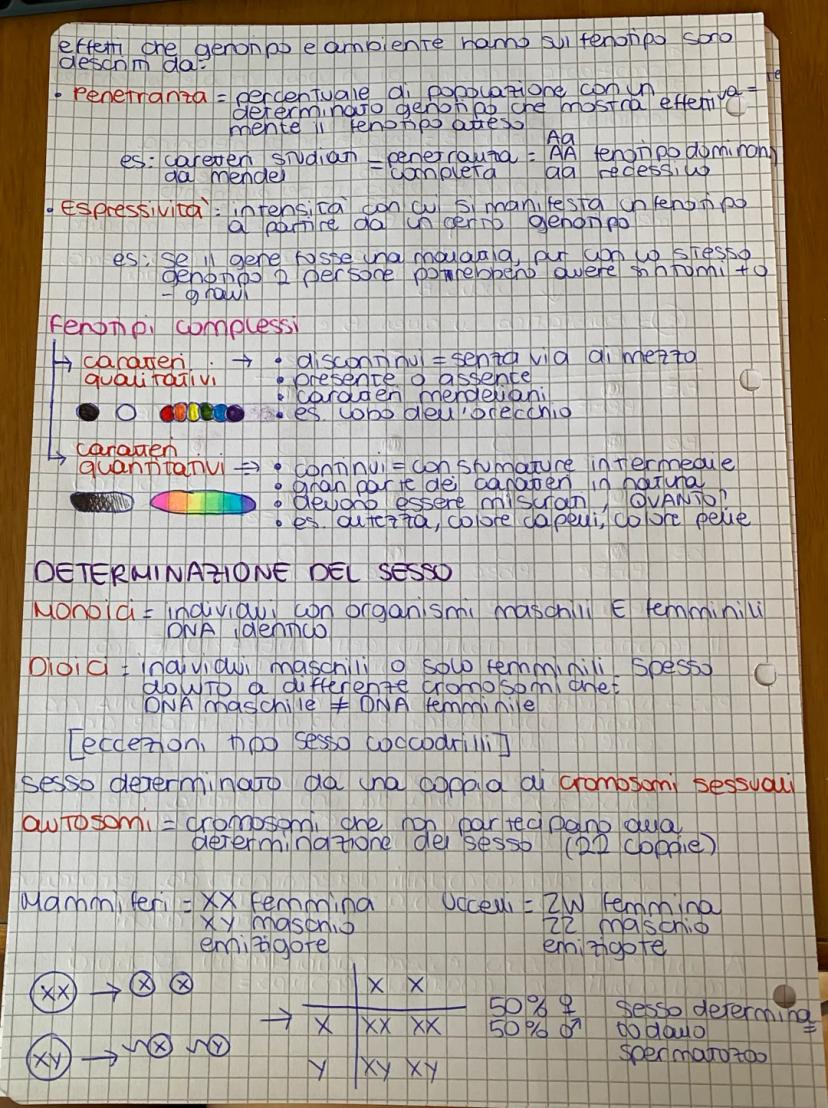 effetti che genotipo e ambiente hanno sul fenotipo sono
descritti da:
• Penetranza = percentuale di popolazione con un
determinato genotipo che mostra effettiva=
mente il fenotipo atteso
es: caratteri studiati = penetranza = Aa AA fenotipo dominan
da mendel completa aa recessivo
• Espressività = intensità con cui si manifesta un fenotipo
a partire da un certo genotipo
es: se il gene fosse una malattia, pur con lo stesso
genotipo 2 persone potrebbero avere sintomi + o
- gravi
Fenotipi complessi
↳ caratteri → • discontinui = senza via di mezzo
qualitativi • presente o assente
• caratteri mendeliani
• es. lobo dell'orecchio
↳ caratteri
quantitativi => • continui = con sfumature intermedie
• gran parte dei caratteri in natura
• devono essere misurati, QUANTO?
• es. altezza, colore capelli, colore pelle
DETERMINAZIONE DEL SESSO
Monoici = individui con organismi maschili E femminili
DNA identico
Dioici = individui maschili o solo femminili, spesso
dovuto a differenze cromosomiche:
DNA maschile ≠ DNA femminile
[eccezioni tipo sesso coccodrilli]
sesso determinato da una coppia di cromosomi sessuali
autosomi = cromosomi che non partecipano alla
determinazione del sesso (22 coppie)
Mammiferi = XX femmina Uccelli = ZW femmina
XY maschio ZZ maschio
emizigote emizigote
XX → X X
X X
→ X XX XX 50% ♀ sesso determina=
XY → X Y 50% ♂ to dallo
Y XY XY spermatozoo